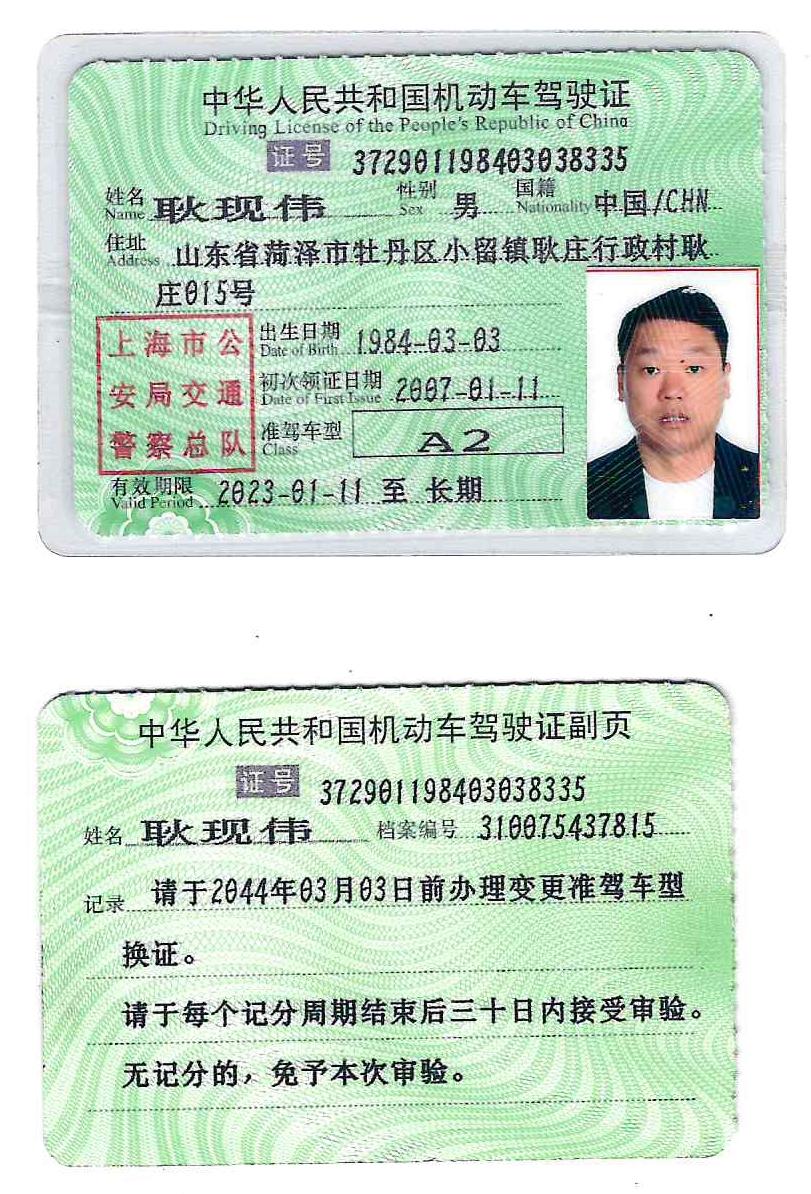 中华人民共和国机动车驾驶证
Driving License of the People's Republic of China
证号 372901198403038335
姓名 耿现伟 性别 男 国籍 中国/CHN
Name Sex Nationality
住址 山东省菏泽市牡丹区小留镇耿庄行政村耿
Address
庄015号
上海市公
安局交通
警察总队
出生日期 1984-03-03
Date of Birth
初次领证日期 2007-01-11
Date of First Issue
准驾车型 A2
Class
有效期限 2023-01-11 至 长期
Valid Period
中华人民共和国机动车驾驶证副页
证号 372901198403038335
姓名 耿现伟 档案编号 310075437815
记录 请于2044年03月03日前办理变更准驾车型
换证。
请于每个记分周期结束后三十日内接受审验。
无记分的，免予本次审验。